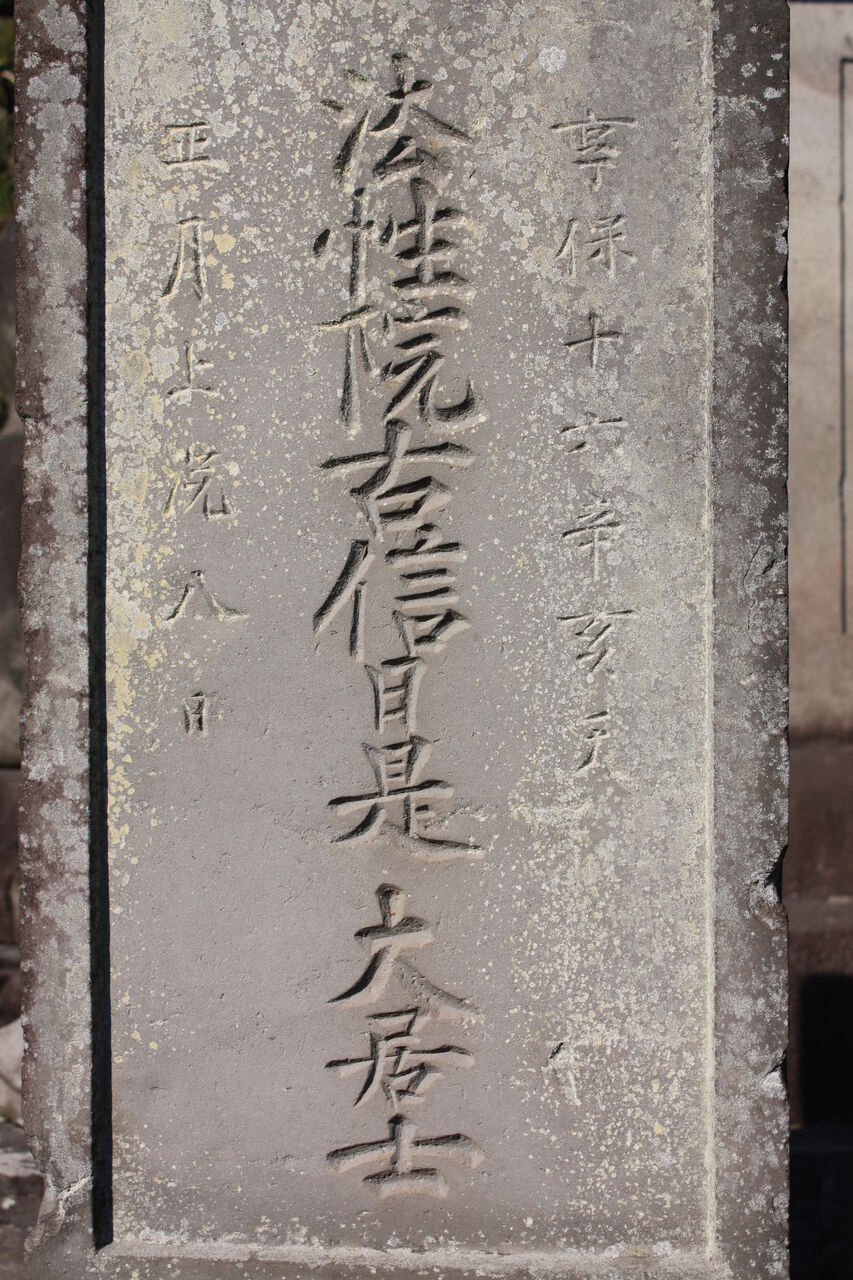 享保十六辛亥天
法性院古信日是大居士
正月上浣八日